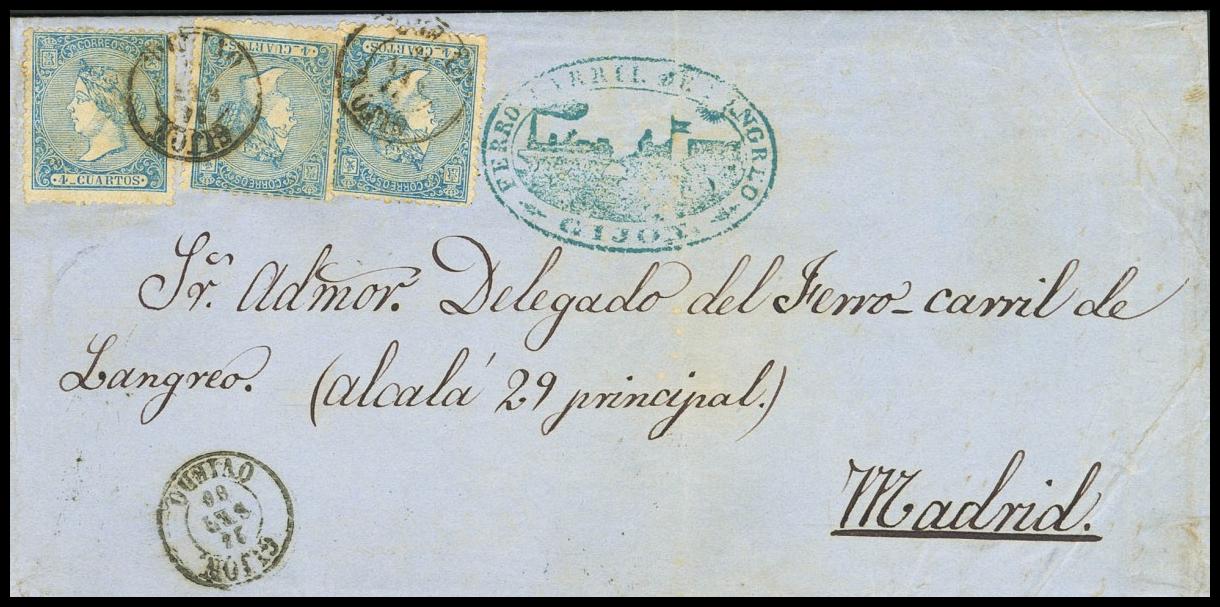 CORREOS
4_CUARTOS
4_CUARTOS
CORREOS
4_CUARTOS
CORREOS
GIJON
FIERRO CARRIL DE LANGREO
GIJON
Sr. Admor. Delegado del Ferro-carril de
Langreo. (Alcalá 29 principal.)
Madrid.
OVIEDO
GIJON